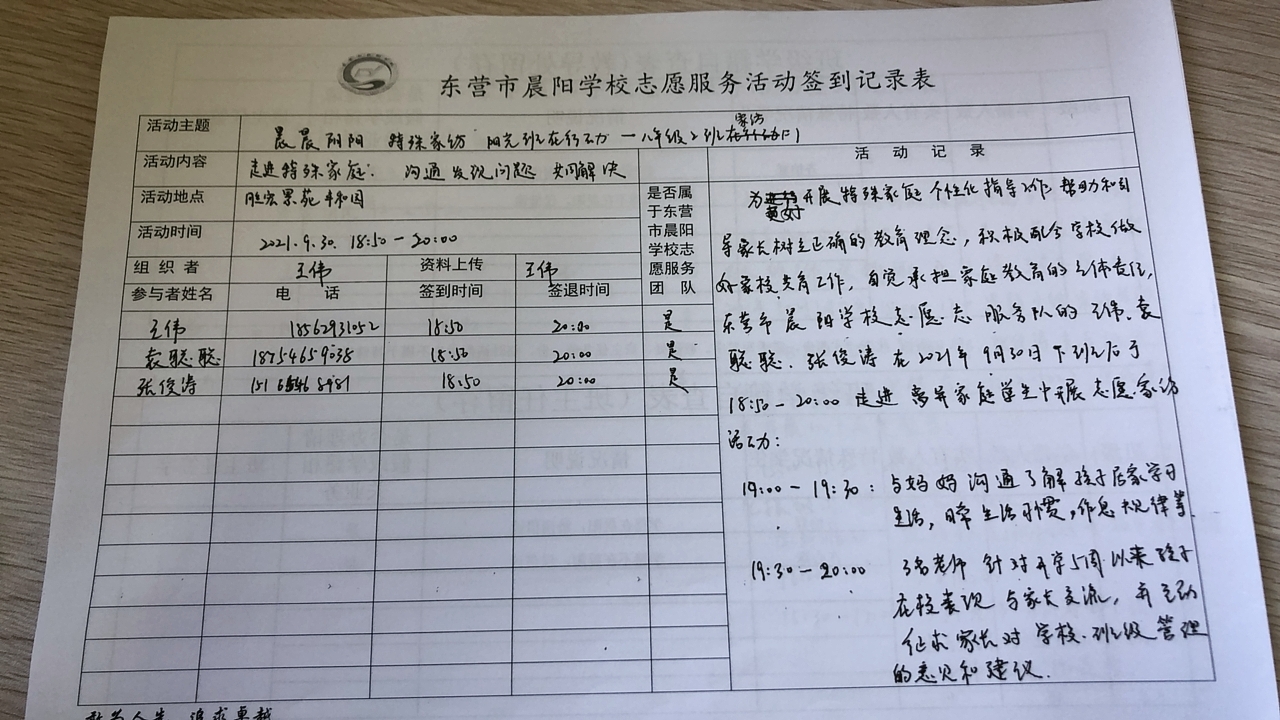 东营市晨阳学校志愿服务活动签到记录表
活动主题 晨晨阳阳 特殊家访 阳光班在行动 — 八年级2班在家访
活动内容 走进特殊家庭: 沟通发现问题 共同解决
活动地点 胜宏景苑
活动时间 2021.9.30 18:50－20:00
组织者 王伟 资料上传 王伟
是否属于东营市晨阳学校志愿服务团队
参与者姓名 电话 签到时间 签退时间
王伟 18562931052 18:50 20:00 是
袁聪聪 18754659038 18:50 20:00 是
张俊涛 18:50 20:00 是
活动记录
为开展特殊家庭个性化指导工作，帮助和引
导家长树立正确的教育理念，积极配合学校做
好家校共育工作，自觉承担家庭教育的主体责任，
东营市晨阳学校志愿志服务队的王伟、袁
聪聪、张俊涛在2021年9月30日下班后于
18:50－20:00 走进离异家庭学生中开展志愿家访
活动：
19:00－19:30：与妈妈沟通了解孩子居家学习
生活，日常生活习惯，作息规律等.
19:30－20:00 3名老师针对开学5周以来孩子
在校表现与家长交流，并主动
征求家长对学校.班级管理
的意见和建议.
敢为人先 追求卓越